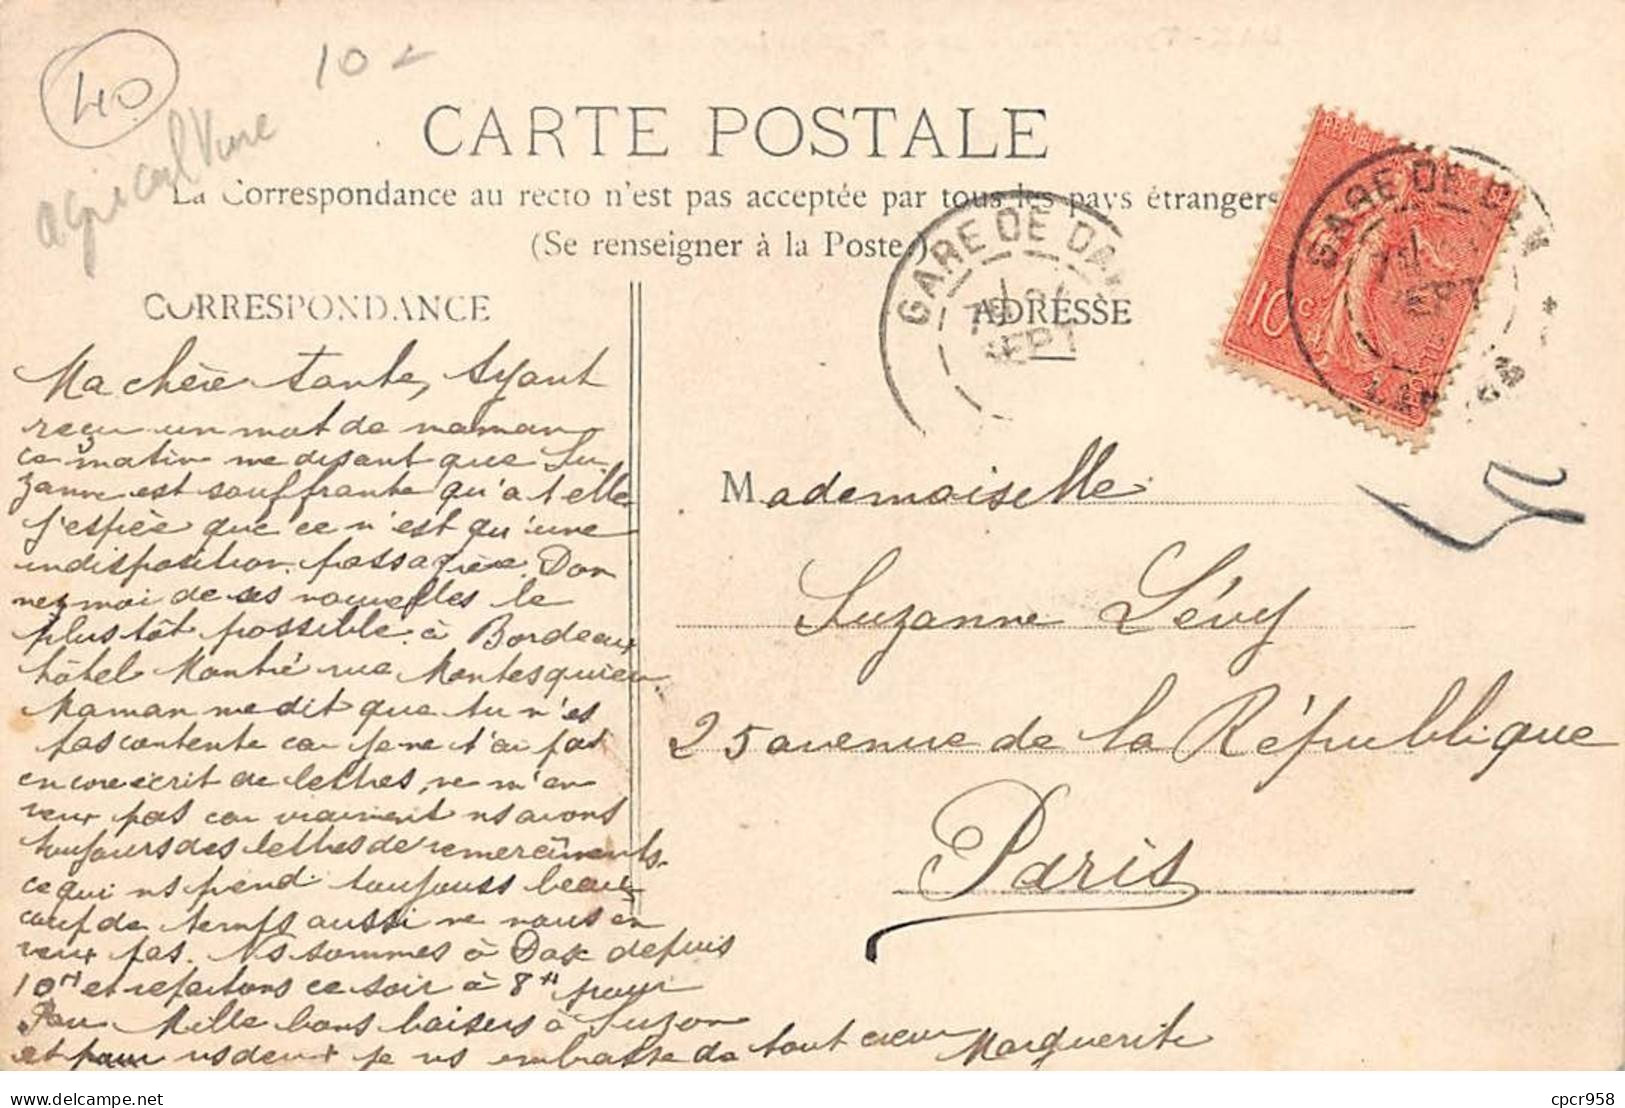 40
10
agriculture
CARTE POSTALE
La Correspondance au recto n'est pas acceptée par tous les pays étrangers
(Se renseigner à la Poste.)
CORRESPONDANCE
ADRESSE
GARE DE DAX
SEPT
GARE DE DAX
10c
Ma chère tante, Ayant
reçu un mot de maman
ce matin me disant que Su
zanne est souffrante qu'a t elle
J'espère que ce n'est qu'une
indisposition passagère. Don
nez moi de ses nouvelles le
plus tôt possible à Bordeaux
hôtel Montré rue Montesquieu
Maman me dit que tu n'es
pas contente car je ne t'ai pas
encore écrit de lettres, ne m'en
veux pas car vraiment ns avons
toujours des lettres de remercîments
ce qui ns prend toujours beau
coup de temps aussi ne nous en
veux pas. Ns sommes à Dax depuis
10H et repartons ce soir à 8H pour
Pau Mille bons baisers à Suzon
et pour vs deux je vs embrasse de tout cœur Marguerite
Mademoiselle
Suzanne Lévy
25 avenue de la République
Paris
delcampe.net
cpcr958